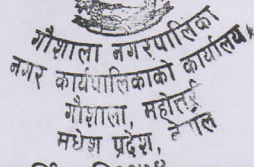 गौशाला नगरपालिका
नगर कार्यपालिकाको कार्यालय
गौशाला, महोत्तरी
मधेश प्रदेश, नेपाल